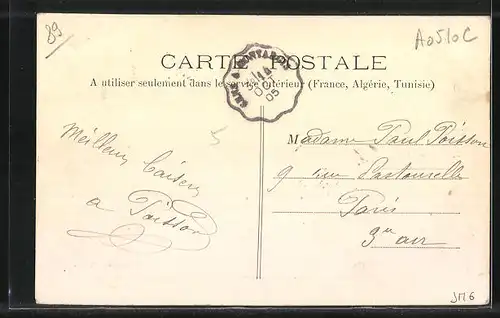 89
A0510C
CARTE POSTALE
A utiliser seulement dans le service intérieur (France, Algérie, Tunisie)
14
05
5
Meilleurs baisers
a Poisson
Madame Paul Poisson
9 rue Pastourelle
Paris
3e arr
JM6